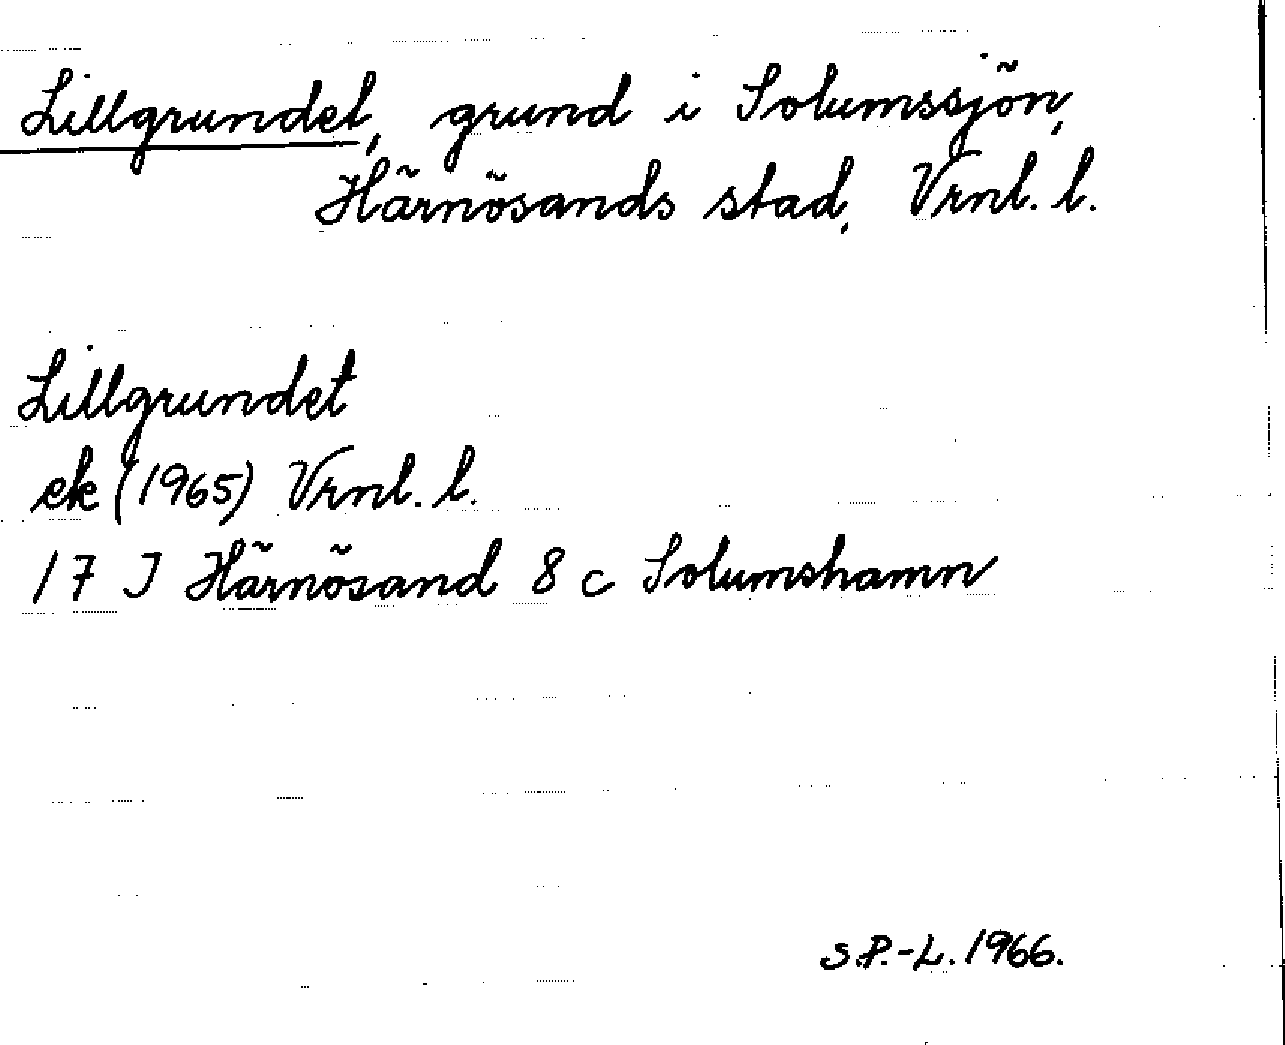 Lillgrundet, grund i Solumssjön,
Härnösands stad, Vrnl. l.
Lillgrundet
ek (1965) Vrnl. l.
17 J Härnösand 8 c Solumshamn
S.P.-L. 1966.